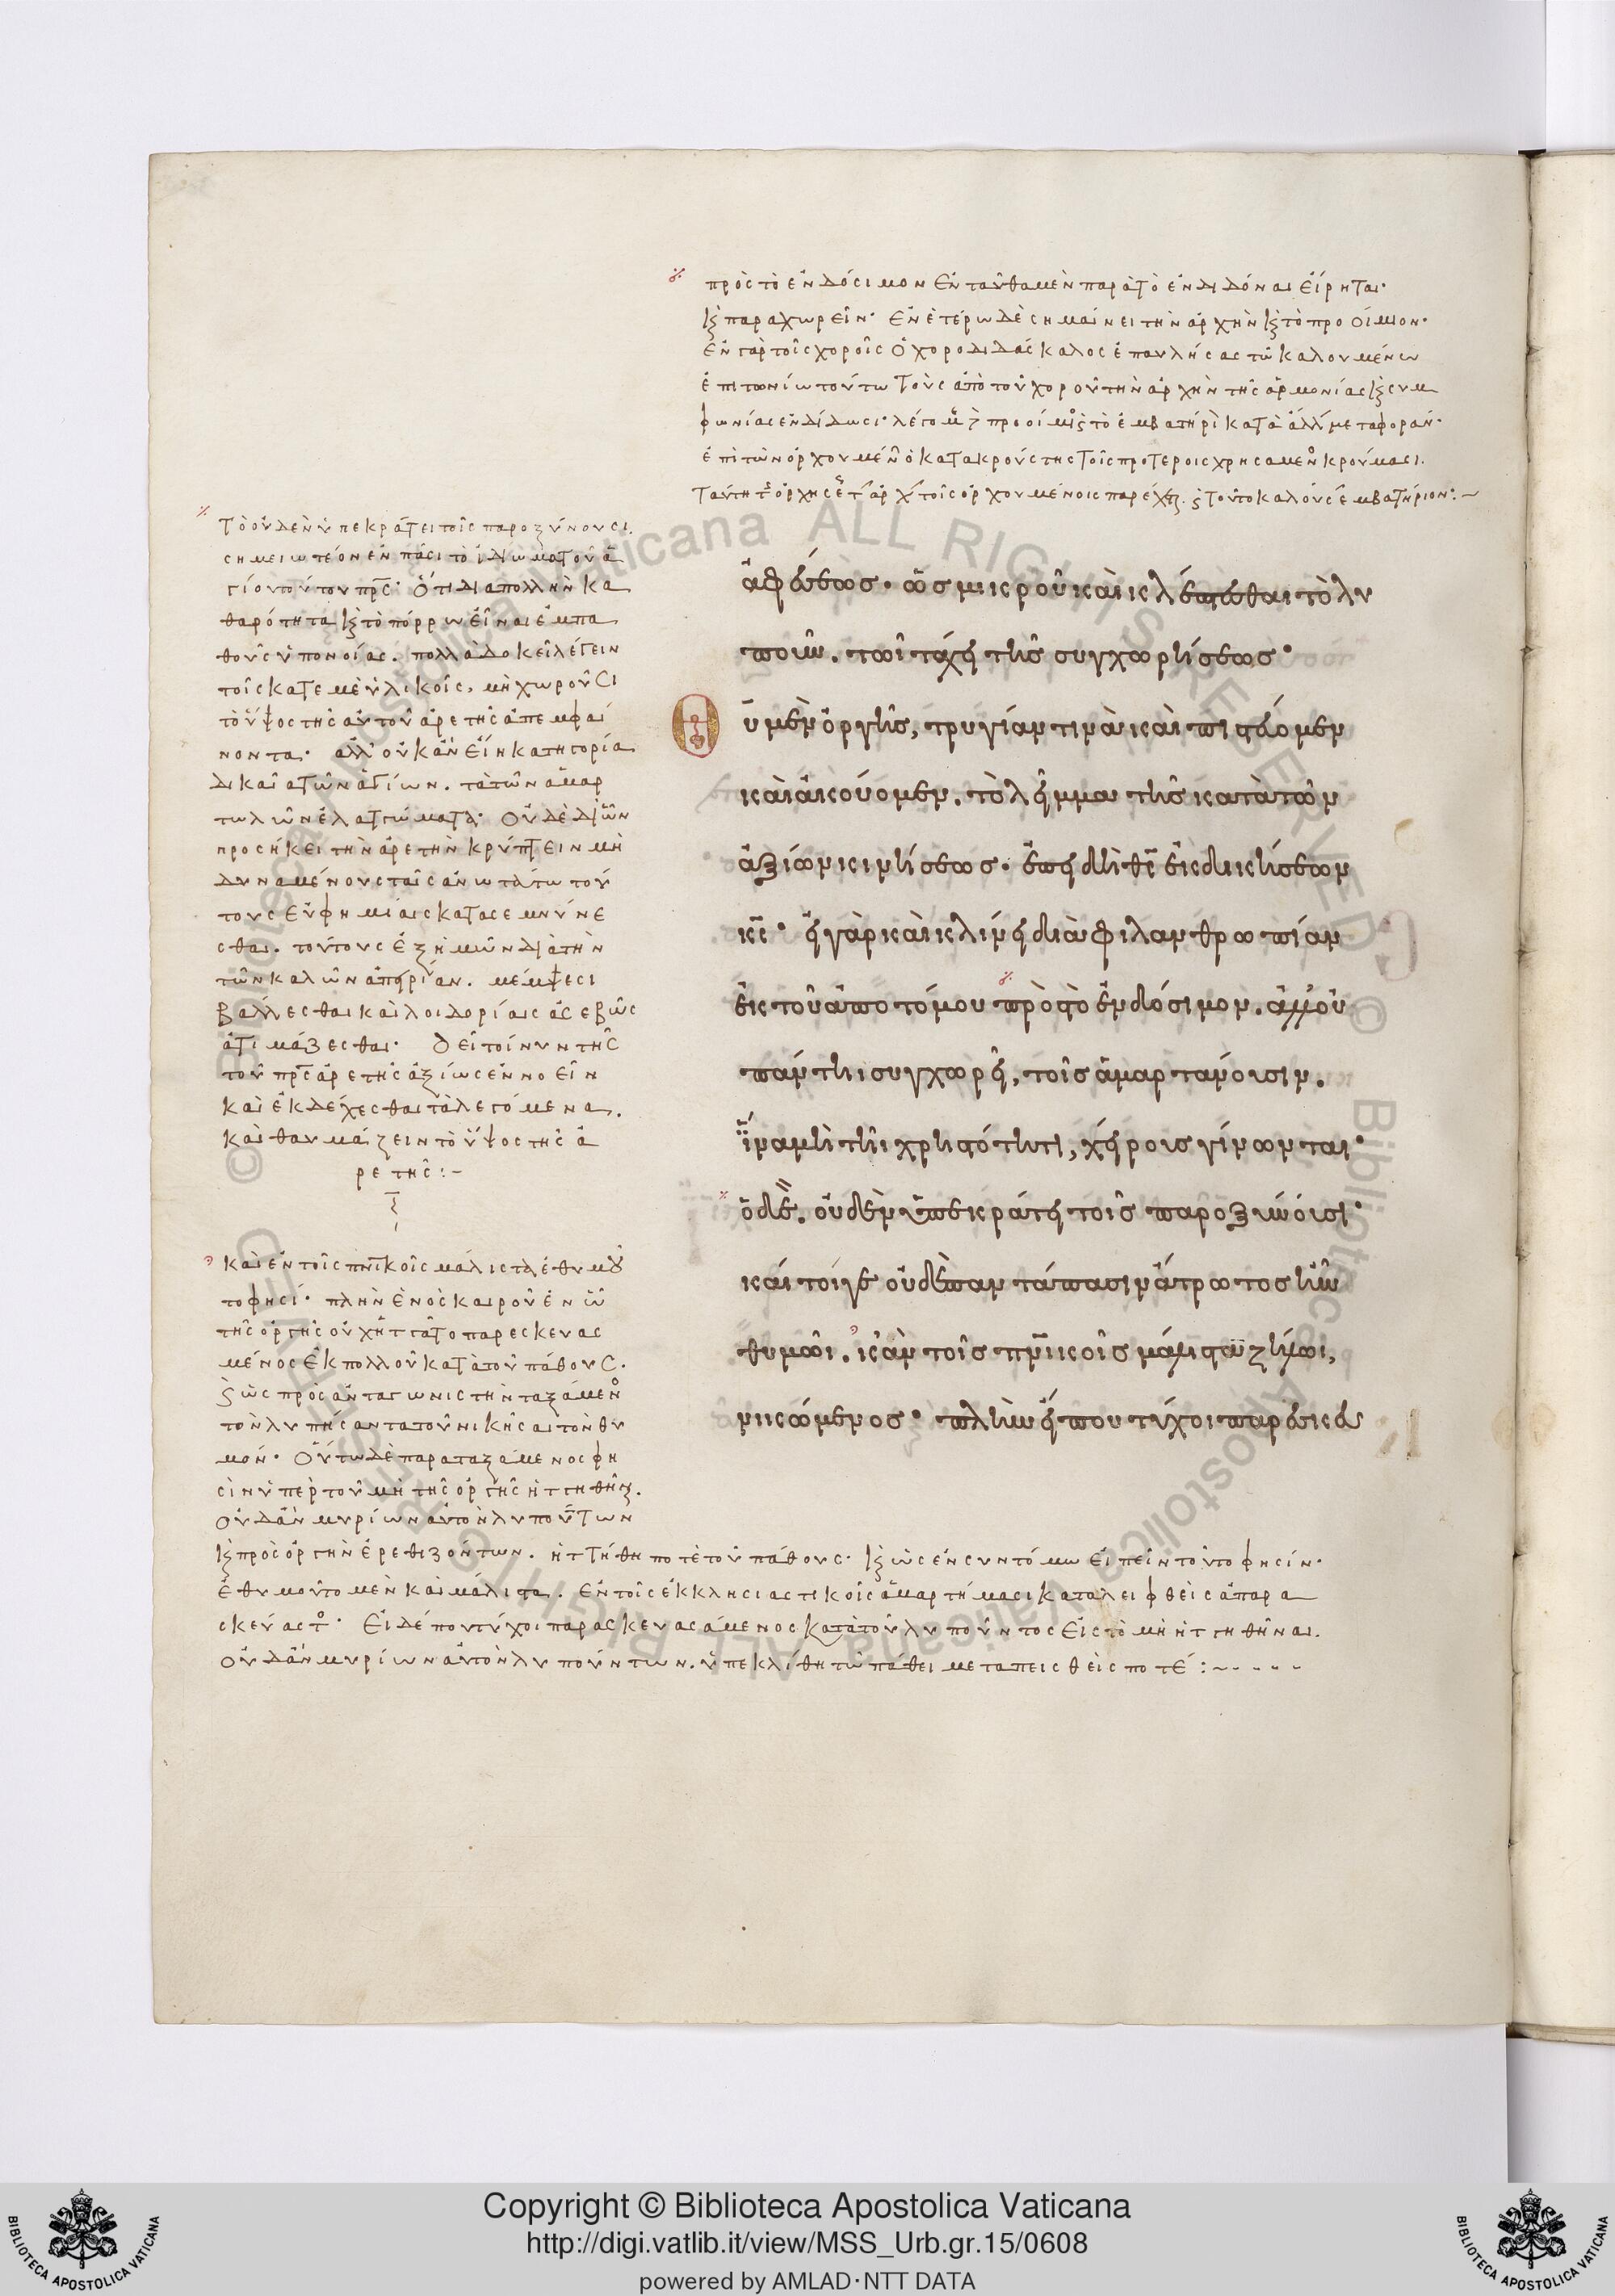 πρὸς τὸ ἐνδόσιμον ἐνταῦθα μὲν παρὰ τὸ ἐνδιδόναι εἴρηται·
καὶ παραχωρεῖν· ἐν ἑτέρω δὲ σημαίνει τὴν ἀρχὴν καὶ τὸ προοίμιον·
ἐν γὰρ τοῖς χοροῖς ὁ χοροδιδάσκαλος ἐπαυλήσας τῶ καλουμένω
τούτω τοὺς ἀπὸ τοῦ χοροῦ τὴν ἀρχὴν τῆς ἁρμονίας καὶ συμ
φωνίας ἐνδίδωσι· κατὰ μεταφοράν·
ἐπὶ τῶν ὀρχουμεν ὁ κατακρούστης τοῖς προτέροις χρησαμεν κρούμασι.
τοῖς ὀρχουμένοις τοῦτο καλοῦσ ἐμβατήριον:~
Τὸ οὐδὲν ὑπεκράτει τοῖς παροξύνουσι.
σημειωτέον ἐν πᾶσι τὸ ἰδίωμα τοῦ ἁ
γίου τούτου πρς· ὅτι διὰ πολλὴν κα
θαρότητα καὶ τὸ πόρρω εἶναι ἐμπα
θοῦς ὑπονοίας. πολλὰ δοκεῖ λέγειν
τοῖς κατ ἐμὲ ὑλικοῖς, μὴ χωροῦσι
τὸ ὕψος τῆς αὐτοῦ ἀρετῆς ἀπεμφαί
νοντα· ἀλλ' οὐκ ἂν εἴη κατηγορία
δικαία τῶν ἁγίων. τὰ τῶν ἁμαρ
τωλῶν ἐλαττώματα· οὐδὲ δι' ὧν
προσήκει τὴν ἀρετὴν κρύπτειν μὴ
δυναμένους ταῖς ἀνωτάτω τού
τους εὐφημίαις κατασεμνύνε
σθαι. τούτους ἐξ ἡμῶν διὰ τὴν
τῶν καλῶν ἀπειρίαν. μέμψεσι
βάλλεσθαι καὶ λοιδορίαις ἀσεβῶς
ἀτιμάζεσθαι· δεῖ τοίνυν τῆς
τοῦ πρς ἀρετῆς ἀξίως ἐννοεῖν
καὶ ἐκδέχεσθαι τὰ λεγόμενα.
καὶ θαυμάζειν τὸ ὕψος τῆς ἀ
ρετῆς:~
ἀφέσεως. ὡς μικροῦ καὶ κλέπτεσθαι τὸ λυ
ποῦν. τῶι τάχει τῆς συγχωρήσεως·
Θυ μὲν ὀργῆς, τρυγίαν τινὰ καὶ πιστεύομεν
καὶ ἀκούομεν. τὸ λεῖμμα τῆς κατὰ τῶν
ἀξίων κινήσεως. ἐπειδὴ θς ἐκδικήσεων
κς· εἰ γὰρ καὶ κλίνει διὰ φιλανθρωπίαν
ἐκ τοῦ ἀποτόμου πρὸς τὸ ἐνδόσιμον. ἀλλ' οὐ
πάντη συγχωρεῖ, τοῖς ἁμαρτάνουσιν.
ἵνα μὴ τῆι χρηστότητι, χείρους γίνωνται·
ὁ δὲ. οὐδὲν ὑπεκράτει τοῖς παροξύνουσι·
καίτοιγε οὐδὲ παντάπασιν ἄτρωτος ἦν
θυμῶι. κἀν τοῖς πνικοῖς μάλιστα ζήλωι,
νικώμενος· πλὴν εἴ που τύχοι παρεσκευ
καὶ ἐν τοῖς πνικοῖς μάλιστα ἐθυμοῦ
το φησί· πλὴν ἑνὸς καιροῦ ἐν ὧ
τῆς ὀργῆς οὐχ ἡττᾶτο παρεσκευασ
μένος ἐκ πολλοῦ κατὰ τοῦ πάθους.
καὶ ὡς πρὸς ἀνταγωνιστὴν ταξάμεν
τὸν λυπήσαντα τοῦ νικῆσαι τὸν θυ
μόν· οὕτω δὲ παραταξάμενος φη
σὶν ὑπὲρ τοῦ μὴ τῆς ὀργῆς ἡττηθῆναι.
οὐδ' ἂν μυρίων αὐτὸν λυπούντων
καὶ πρὸς ὀργὴν ἐρεθιζόντων. ἡττήθη ποτὲ τοῦ πάθους· καὶ ὡς ἐν συντόμω εἰπεῖν τοῦτο φησίν·
ἐθυμοῦτο μὲν καὶ μάλιστα. ἐν τοῖς ἐκκλησιαστικοῖς ἁμαρτήμασι καταλειφθεὶς ἀπαρα
σκεύαστο· εἰ δέ που τύχοι παρασκευασάμενος κατὰ τοῦ λυποῦντος εἰς τὸ μὴ ἡττηθῆναι.
οὐδ' ἂν μυρίων αὐτὸν λυπούντων. ὑπεκλίθη τῶ πάθει μεταπεισθεὶς ποτέ:~
Copyright © Biblioteca Apostolica Vaticana
http://digi.vatlib.it/view/MSS_Urb.gr.15/0608
powered by AMLAD·NTT DATA
BIBLIOTECA APOSTOLICA VATICANA
BIBLIOTECA APOSTOLICA VATICANA